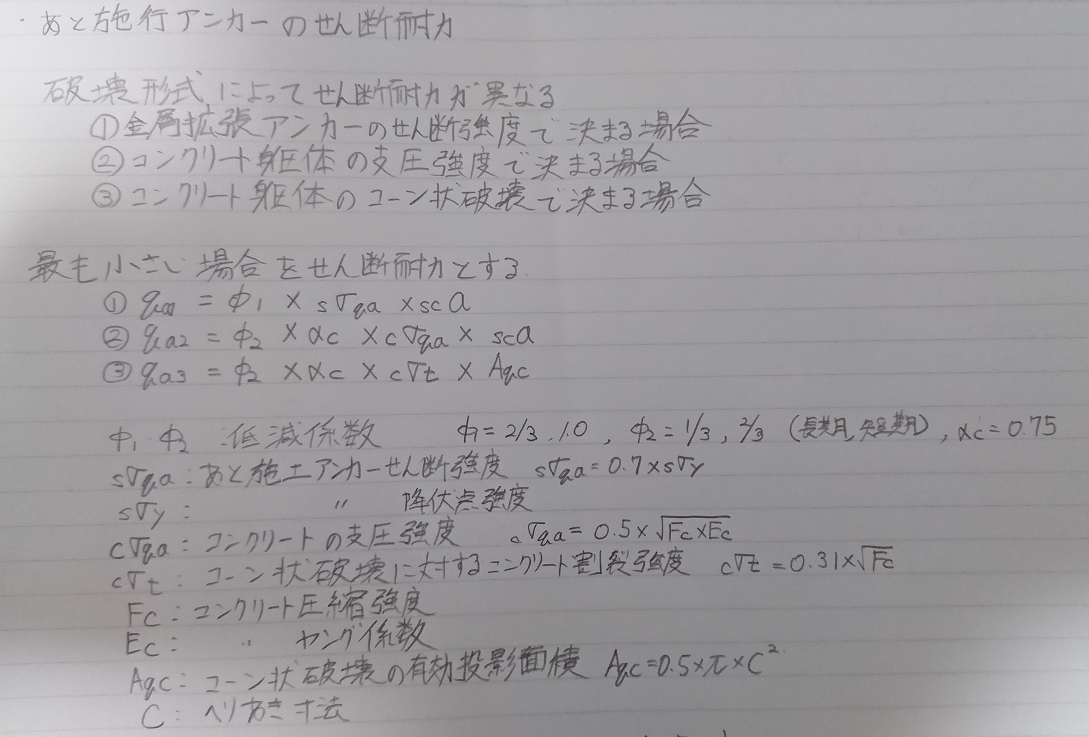 ・あと施行アンカーのせん断耐力
破壊形式によってせん断耐力が異なる
①金属拡張アンカーのせん断強度で決まる場合
②コンクリート躯体の支圧強度で決まる場合
③コンクリート躯体のコーン状破壊で決まる場合
最も小さい場合をせん断耐力とする
① qa1 = φ1 × sσqa × sca
② qa2 = φ2 × αc × cσqa × sca
③ qa3 = φ2 × αc × cσt × Aqc
φ1 φ2 : 低減係数 φ1 = 2/3, 1.0 , φ2 = 1/3, 2/3 (長期, 短期) , αc = 0.75
sσqa : あと施工アンカーせん断強度 sσqa = 0.7 × sσy
sσy : 〃 降伏点強度
cσqa : コンクリートの支圧強度 cσqa = 0.5 × √Fc×Ec
cσt : コーン状破壊に対するコンクリート割裂強度 cσt = 0.31×√Fc
Fc : コンクリート圧縮強度
Ec : 〃 ヤング係数
Aqc : コーン状破壊の有効投影面積 Aqc = 0.5×π×C²
C : へりあき寸法